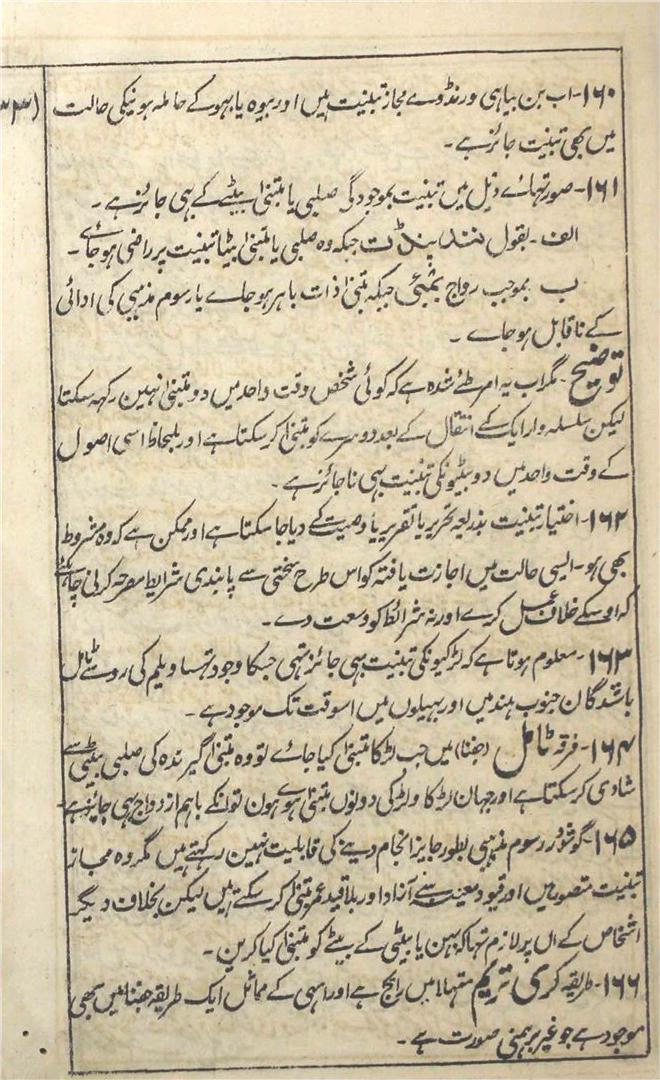 ۱۶۰- اب بن بیاہی و رنڈوے مجاز تبنیت ہیں اور بیوہ یا بہو کے حاملہ ہونیکی حالت
(۳۳
میں بھی تبنیت جائز ہے۔
۱۶۱- صورتہاے ذیل میں تبنیت بموجودگی صلبی یا متبنیٰ بیٹے کے بہی جائز ہے۔
الف۔ بقول نند پنڈت جبکہ وہ صلبی یا متبنیٰ بیٹا تبنیت پر راضی ہو جاے۔
ب بموجب رواج بمبئی جبکہ متبنیٰ ذات باہر ہو جاے یا رسوم مذہبی کی ادائی
کے ناقابل ہو جاے۔
توضیح۔ مگر اب یہ امر طے شدہ ہے کہ کوئی شخص وقت واحد میں دو متبنیٰ نہین رکہہ سکتا
لیکن سلسلہ وار ایک کے انتقال کے بعد دوسرے کو متبنیٰ کر سکتا ہے اور بلحاظ اسی اصول
کے وقت واحد میں دو بیٹیونکی تبنیت بہی ناجائز ہے۔
۱۶۲- اختیار تبنیت بذریعہ تحریر یا تقریر یا وصیت کے دیا جا سکتا ہے اور ممکن ہے کہ وہ مشروط
بھی ہو۔ ایسی حالت میں اجازت یافتہ کو اس طرح سختی سے پابندی شرایط مصرحہ کرنی چاہئے
کہ اوسکے خلاف عمل کرے اور نہ شرائط کو وسعت دے۔
۱۶۳- معلوم ہوتا ہے کہ لڑکیونکی تبنیت بہی جائز تہی جسکا وجود تہسا ویلم کی رو سے ٹامل
باشندگان جنوب ہند میں اور بہیلوں میں اسوقت تک موجود ہے۔
۱۶۴- فرقہ ٹامل (جفنا) میں جب لڑکا متبنیٰ کیا جاے تو وہ متبنیٰ گیرندہ کی صلبی بیٹی سے
شادی کر سکتا ہے اور جہان لڑکا و لڑکی دونوں متبنیٰ ہوے ہون تو انکے باہم ازدواج بہی جایز ہے۔
۱۶۵- گو شودر رسوم مذہبی بطور جایز انجام دینے کی قابلیت نہین رکہتے ہیں مگر وہ مجاز
تبنیت متصور ہیں اور قیود معینہ سے آزاد اور بلا قید عمر متبنیٰ کر سکتے ہیں لیکن بخلاف دیگر
اشخاص کے ان پر لازم تہا کہ بہن یا بیٹی کے بیٹے کو متبنیٰ کیا کرین۔
۱۶۶- طریقہ کری تریم متہلا میں رایج ہے اور اسہی کے مماثل ایک طریقہ جفنا میں بھی
موجود ہے جو غیر برہمنی صورت ہے۔